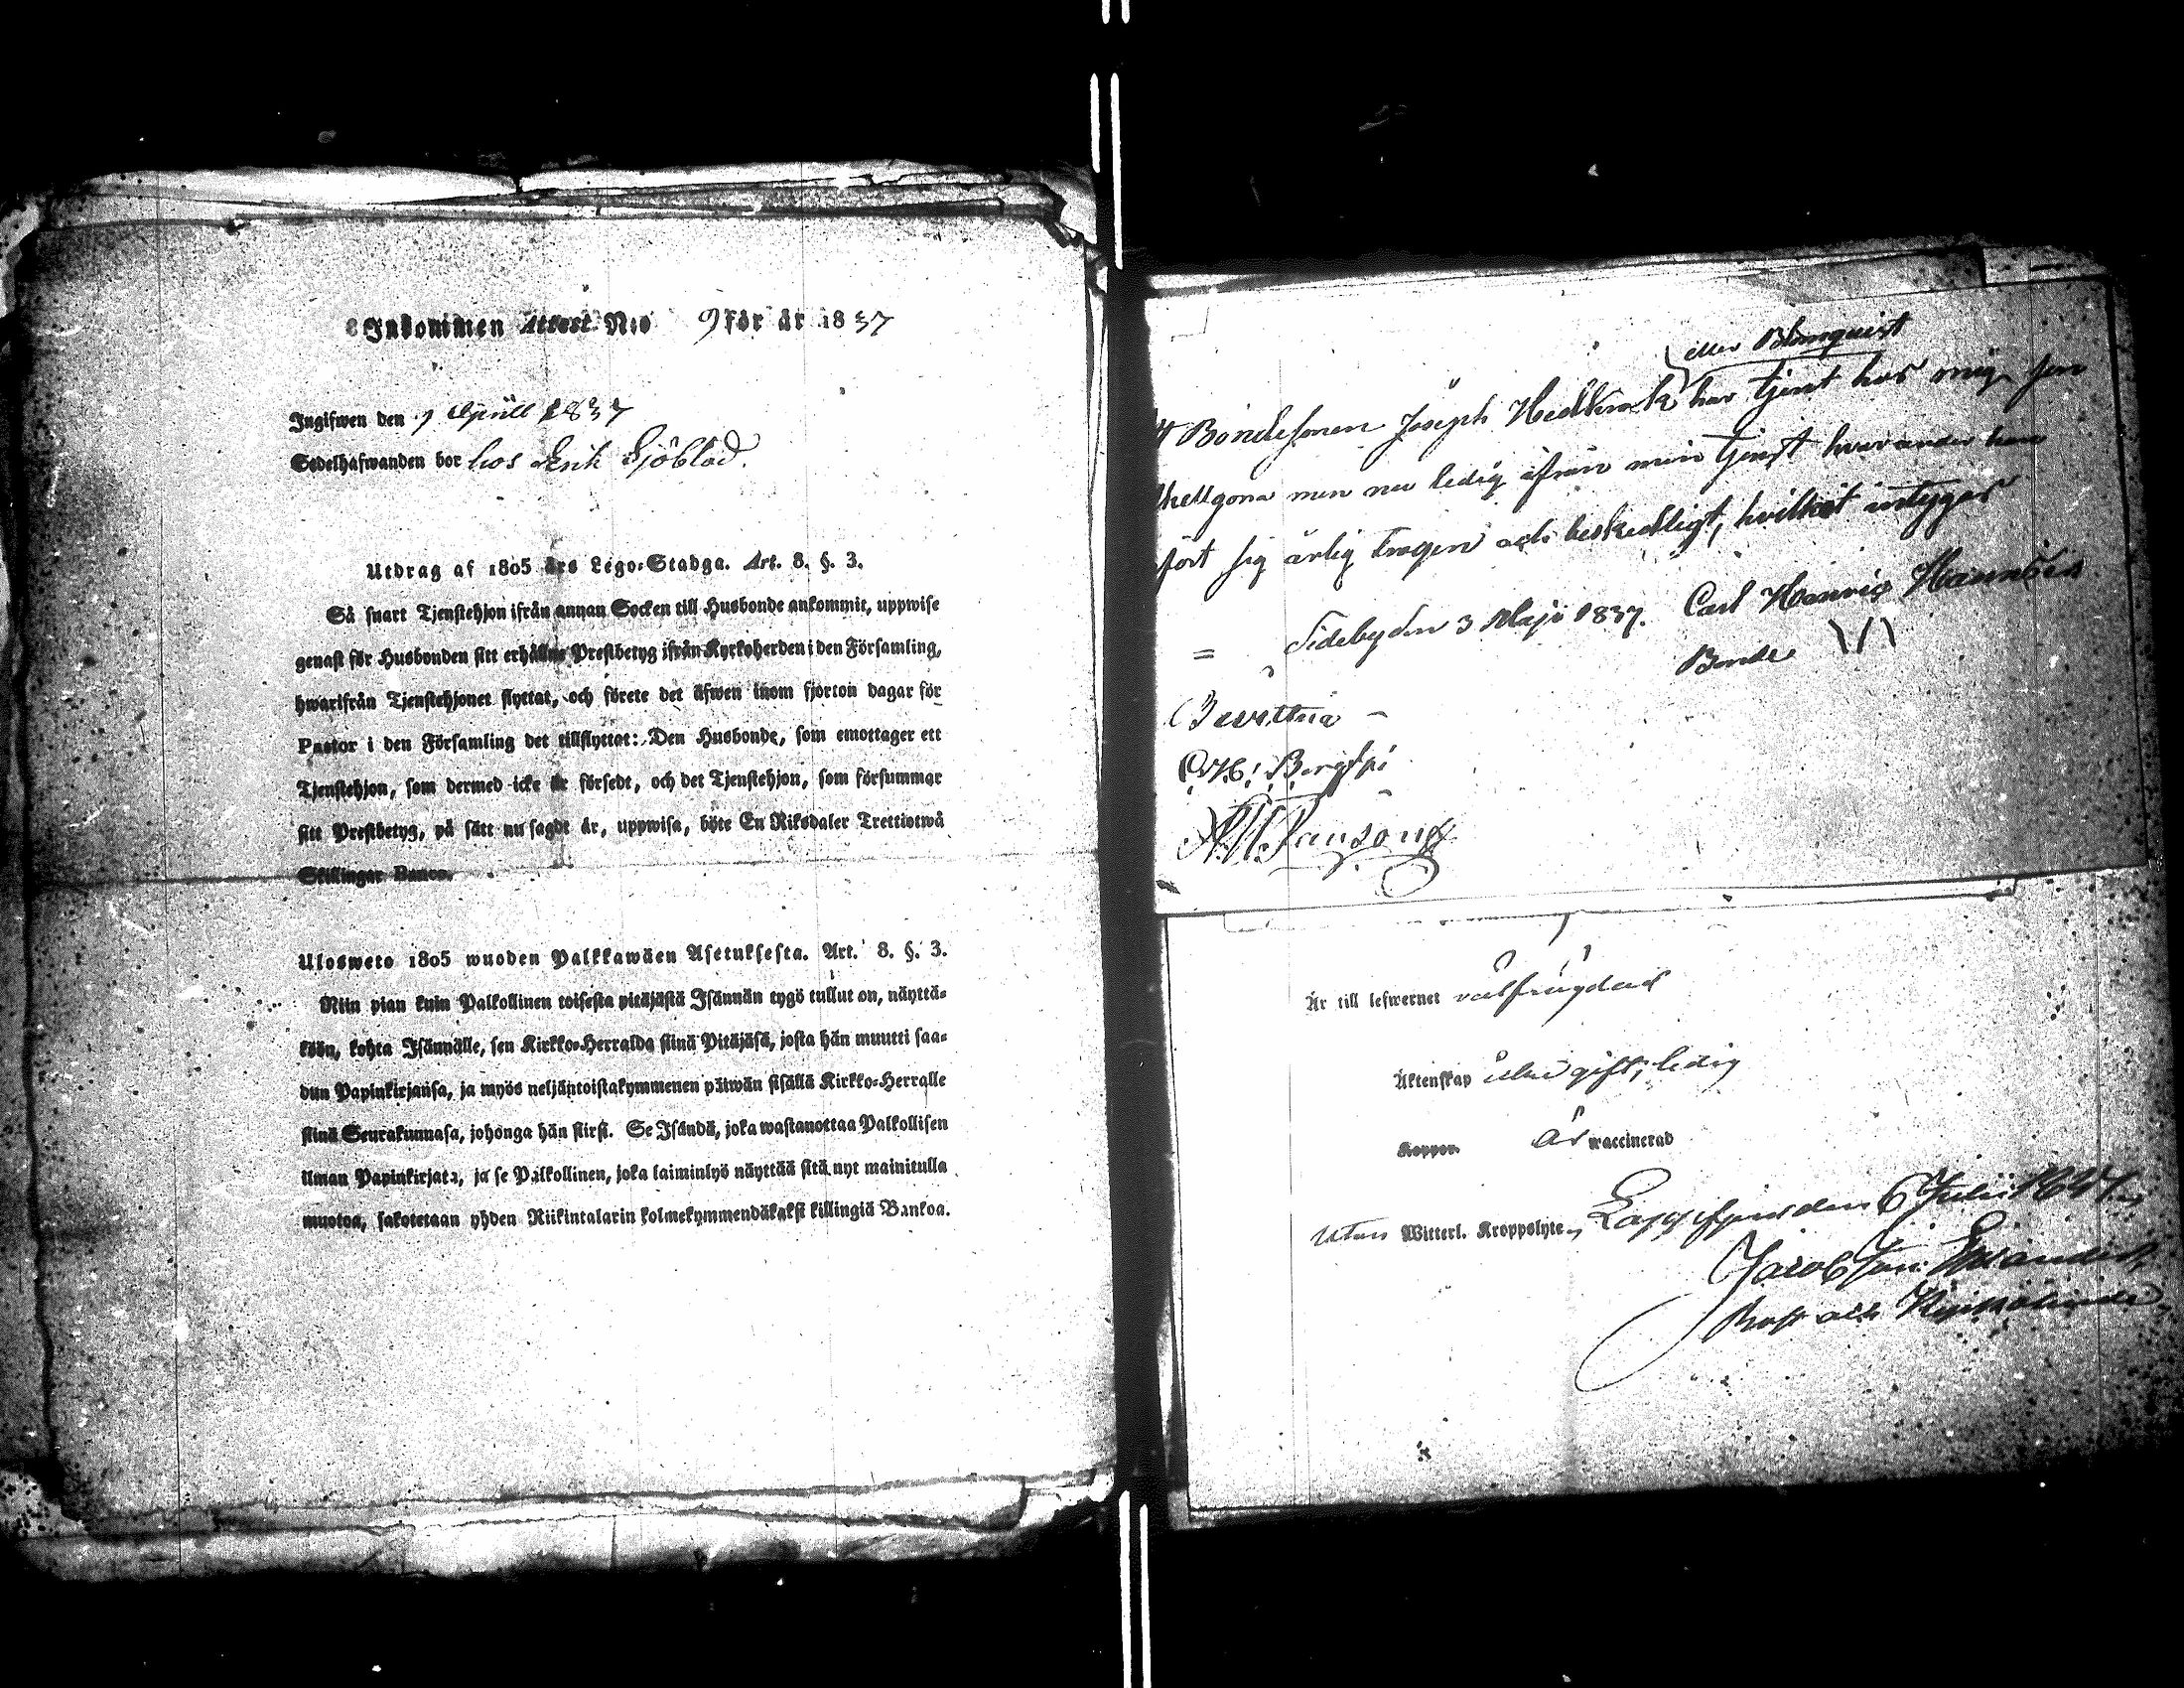 Inkommen Attest N:o 9 för år 1837
Ingifwen den 9 Aprill 1837
Sedelhafwanden bor hos Erik Sjöblad.
Utdrag af 1805 års Lego-Stadga. Art. 8. §. 3.
Så snart Tjenstehjon ifrån annan Socken till Husbonde ankommit, uppwise
genast för Husbonden sitt erhållne Prestbetyg ifrån Kyrkoherden i den Församling,
hwarifrån Tjenstehjonet flyttat, och förete det äfwen inom fjorton dagar för
Pastor i den Församling det tillflyttat: Den Husbonde, som emottager ett
Tjenstehjon, som dermed icke är försedt, och det Tjenstehjon, som försummar
sitt Prestbetyg, på sätt nu sagdt är, uppwisa, böte En Riksdaler Trettiotwå
Skillingar Banco.
Ulosweto 1805 wuoden Palkkawäen Asetuksesta. Art. 8. §. 3.
Niin pian kuin Palkollinen toisesta pitäjästä Isännän tygö tullut on, näyttä-
köön, kohta Isännälle, sen Kirkko-Herralda siinä Pitäjäsä, josta hän muutti saa-
dun Papinkirjansa, ja myös neljäntoistakymmenen päiwän sisällä Kirkko-Herralle
siinä Seurakunnasa, johonga hän siirsi. Se Isändä, joka wastanottaa Palkollisen
ilman Papinkirjata, ja se Palkollinen, joka laiminlyö näyttää sitä nyt mainitulla
muotoa, sakotetaan yhden Riikintalarin kolmekymmendäkaksi killingiä Bankoa.
eller Blomquist
Bondesonen Joseph Hedkrok har tjent hos mig sen
hellgona men nu ledig ifrån min tjenst hvarunder han
fört sig ärlig trogen och beskedligt, hvilket intygas
= Sideby den 3 Maji 1837. Carl Henric Hannsen
Bonde
Bevittna
är till lefwernet välfrägdad
Äktenskap gift, ledig
Koppor. är waccinerad
utan Witterl. Kroppslyte, Lappfjerd den 6
Jacob